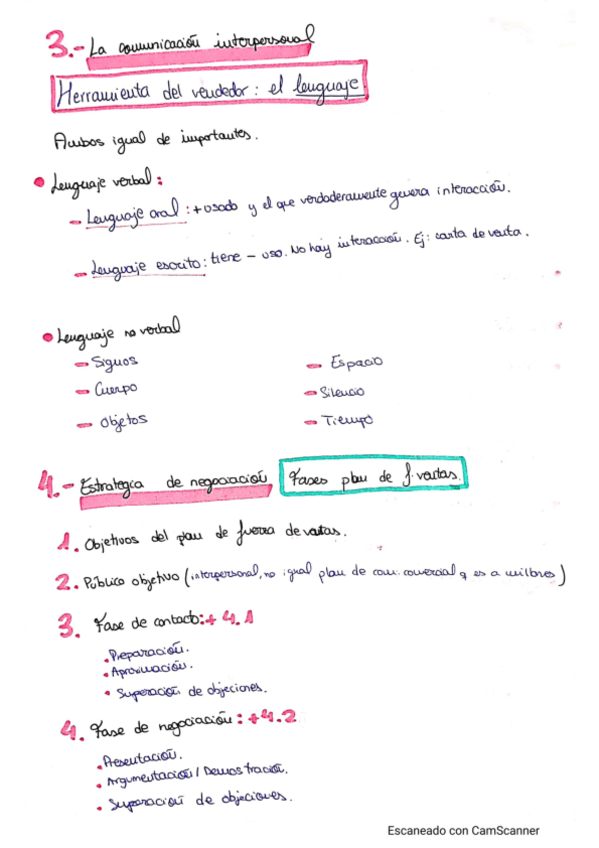 3.- La comunicación interpersonal
Herramienta del vendedor: el lenguaje
Ambos igual de importantes.
• Lenguaje verbal:
- Lenguaje oral: + usado y el que verdaderamente genera interacción.
- Lenguaje escrito: tiene - uso. No hay interacción. Ej: carta de venta.
• Lenguaje no verbal
- Signos
- Espacio
- Cuerpo
- Silencio
- Objetos
- Tiempo
4.- Estrategia de negociación Fases plan de f. ventas.
1. Objetivos del plan de fuerza de ventas.
2. Público objetivo (interpersonal, no igual plan de com. comercial q es a millones)
3. Fase de contacto: + 4.1
• Preparación.
• Aproximación.
• Superación de objeciones.
4. Fase de negociación: + 4.2
• Presentación.
• Argumentación / Demostración.
• Superación de objeciones.
Escaneado con CamScanner